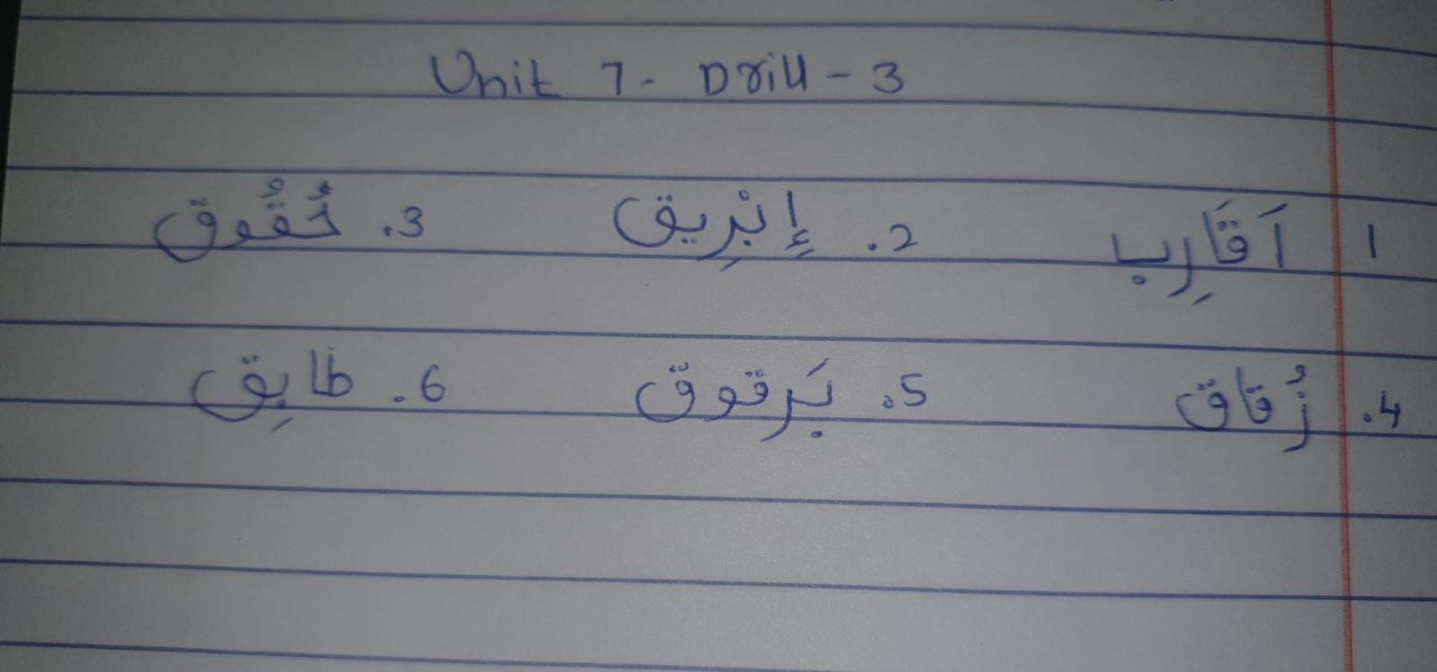 Unit 7- Drill - 3
1 اَقَارِب 2. إِبْرِيق 3. حُقُوق
4. زُقاق 5. بَرقوق 6. طابِق